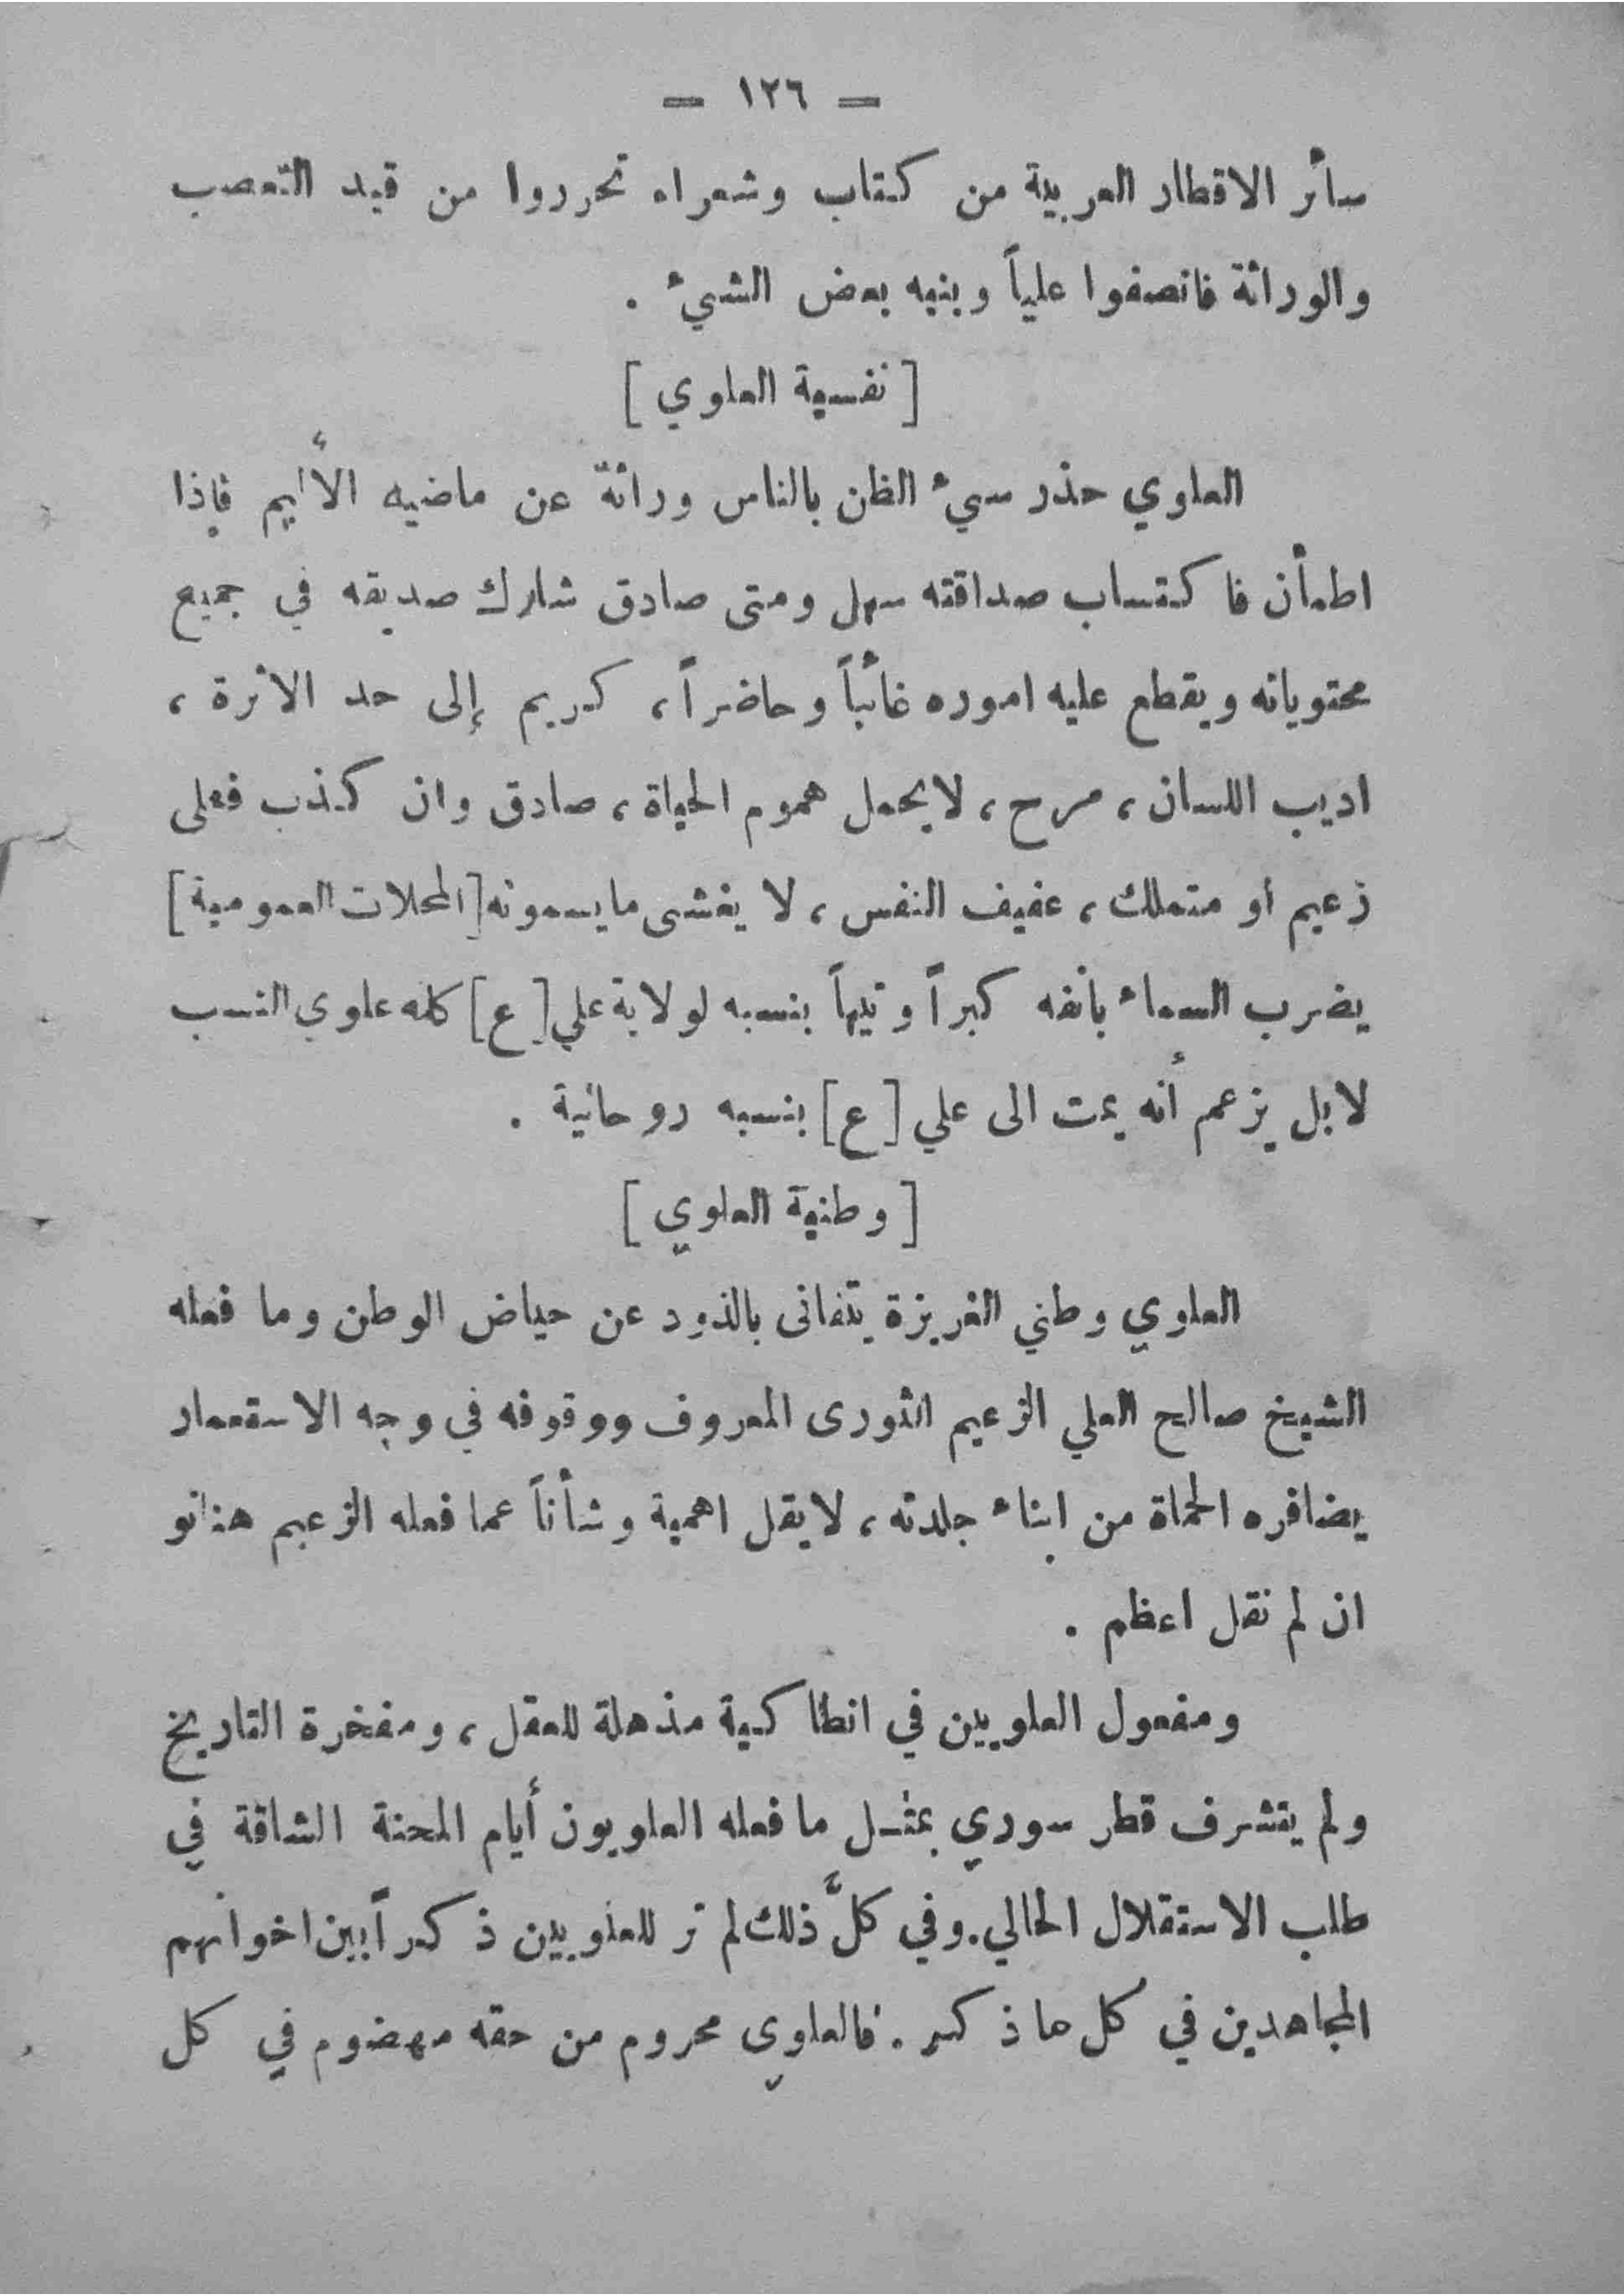 — ١٢٦ —
سائر الاقطار العربية من كتاب وشعراء تحرروا من قيد التعصب
والوراثة فانصفوا علياً وبنيه بعض الشيء .
[ نفسية العلوي ]
العلوي حذر سيء الظن بالناس وراثة عن ماضيه الأليم فإذا
اطمأن فاكتساب صداقته سهل ومتى صادق شارك صديقه في جميع
محتوياته ويقطع عليه اموره غائباً وحاضراً، كريم إلى حد الاثرة ،
اديب اللسان ، مرح ، لايحمل هموم الحياة ، صادق وان كذب فعلى
زعيم او متملك ، عفيف النفس ، لا يغشى مايسمونه [المحلات العمومية]
يضرب السماء بأنفه كبراً وتيهاً بنسبه لولاية علي [ع] كله علوي النسب
لابل يزعم أنه يمت الى علي [ع] بنسبه روحانية .
[ وطنية العلوي ]
العلوي وطني الغريزة يتفانى بالذود عن حياض الوطن وما فعله
الشيخ صالح العلي الزعيم الثورى المعروف ووقوفه في وجه الاستعمار
يضافره الحماة من ابناء جلدته ، لايقل اهمية وشأناً عما فعله الزعيم هنانو
ان لم نقل اعظم .
ومفعول العلويين في انطاكية مذهلة للعقل ، ومفخرة التاريخ
ولم يتشرف قطر سوري بمثل ما فعله العلويون أيام المحنة الشاقة في
طلب الاستقلال الحالي . وفي كلَّ ذلك لم تر للعلويين ذكراً بين اخوانهم
المجاهدين في كل ما ذكر . فالعلوى محروم من حقه مهضوم في كل